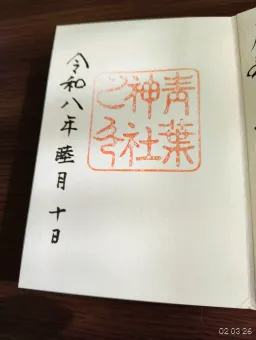 青葉
神社
令和八年 睦月 十日
02 03 26